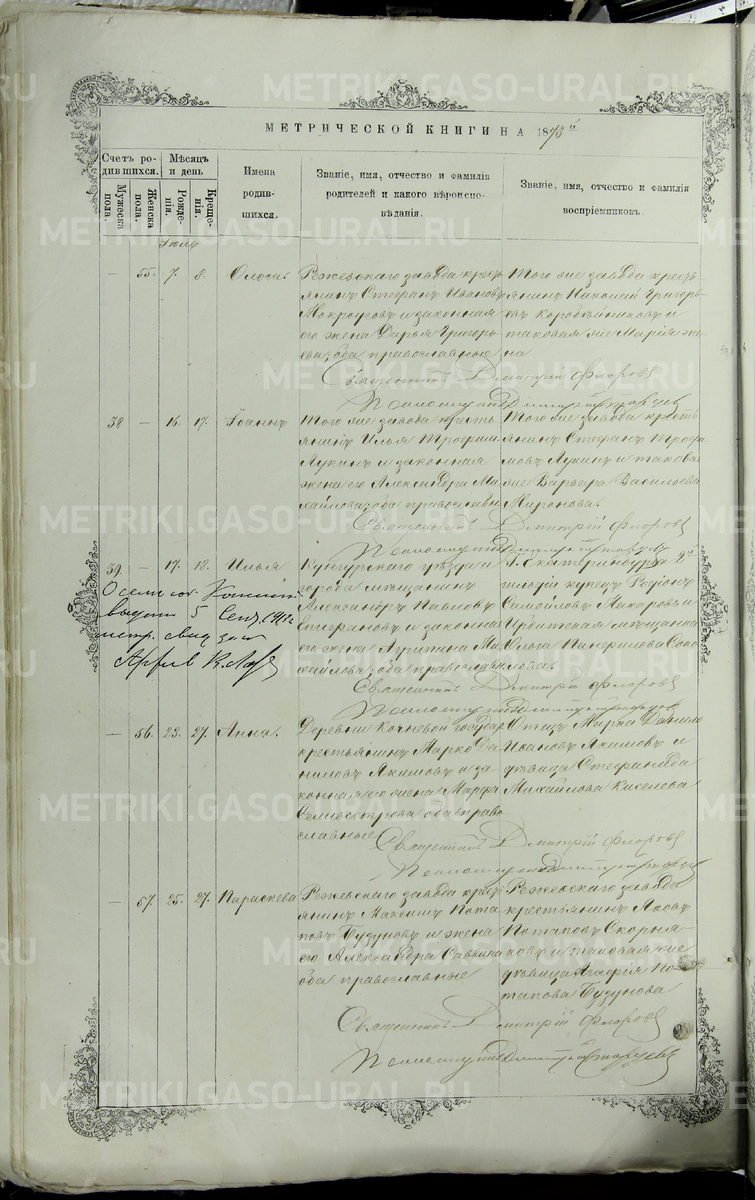 МЕТРИЧЕСКОЙ КНИГИ НА 1875й
Счетъ родившихся.
Мужеска пола.
Женска пола.
Мѣсяцъ и день
Рожденія.
Крещенія.
Имена родившихся.
Званіе, имя, отчество и фамилія родителей и какого вѣроисповѣданія.
Званіе, имя, отчество и фамилія воспріемниковъ.
Іюль
— 55. 7. 8. Ольга.
Режевскаго завода крестьянинъ Стефанъ Ивановъ
Мокроусовъ и законная
его жена Дарья Григорьева; оба православные
Того же завода крестьянинъ
Григорьевъ Коробейниковъ и
таковая же Марія
Священникъ Димитрій Флоровъ
38 — 16. 17. Іоаннъ
Того же завода крестьянинъ Илья Трофимовъ
Лукинъ и законная
жена его Александра Михайлова; оба православные
Того же завода крестьянинъ Стефанъ Трофимовъ Лукинъ и таковая
же Варвара Васильева
Миронова.
Священникъ Димитрій Флоровъ
39. — 17. 18. Илья
Кунгурскаго уѣзда и
города мѣщанинъ
Александръ Павловъ
Стефановъ и законная
его жена Михайлова; оба православные
Г. Екатеринбурга 2й
гильдіи купецъ Родіонъ
Самойловъ Макаровъ и
Ирбитская мѣщанка
Ольга Панфилова
О семъ
выдано 5 Сент. 1912
метр. свид. за №
Священникъ Димитрій Флоровъ
— 56. 23. 27. Анна.
Деревни Кочневой государ.
крестьянинъ Марко Даниловъ Якимовъ и законная его жена Марфа
Селивестрова оба православные
Отецъ Марка Данило
Ивановъ Якимовъ и
дѣвица Стефанида
Михайлова Киселева
Священникъ Димитрій Флоровъ
— 57. 25. 27. Параскева
Режевскаго завода крестьянинъ Максимъ Потаповъ Бузуновъ и жена
его Александра Саввина
оба православные
Режевскаго завода
крестьянинъ Іаковъ
Потаповъ и таковая же
дѣвица Агафія Потапова Бузунова
Священникъ Димитрій Флоровъ
METRIKI.GASO-URAL.RU